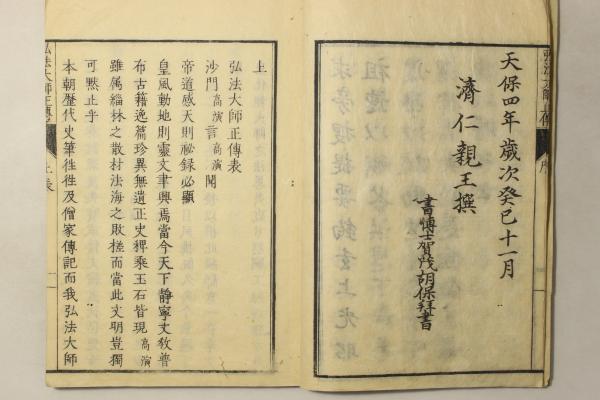 天保四年歲次癸巳十一月
濟仁親王撰
書博士賀茂胡保拜書
上
弘法大師正傳表
沙門高演言高演聞
帝道感天則祕録必顯
皇風動地則靈文聿興焉當今天下靜寧文敎普
布古籍逸篇珍異無遺正史稗乘玉石皆現高演
雖属緇林之散材法海之敗槎而當此文明豈獨
可黙止乎
本朝歷代史筆徃徃及僧家傳記而我弘法大師
弘法大師正傳
上表